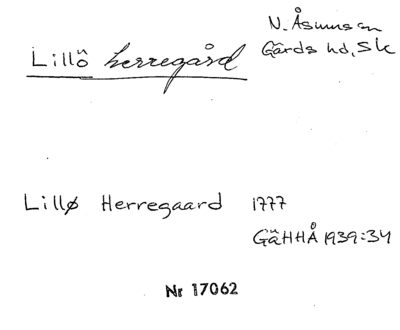 Lillö herregård
N. Åsum sn
Gärds hd, Sk
Lillø Herregaard 1777
GäHHÅ 1939:34
Nr 17062